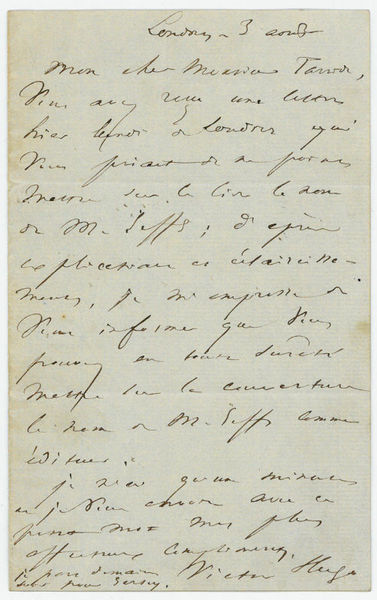 Londres - 3 août
Mon cher Monsieur Tarride,
Vous avez reçu une lettre
hier lundi de Londres qui
vous priait de ne pas
mettre sur le livre le nom
de M. Jeffs ; d'après
explications et éclaircisse-
ments, je m'empresse de
vous informer que vous
pouvez en toute sûreté
mettre sur la couverture
le nom de M. Jeffs comme
éditeur.
je n'ai qu'une minute
et je vous envoie avec ce
petit mot mes plus
affectueux compliments.
Victor Hugo
je pars demain
pour Jersey.